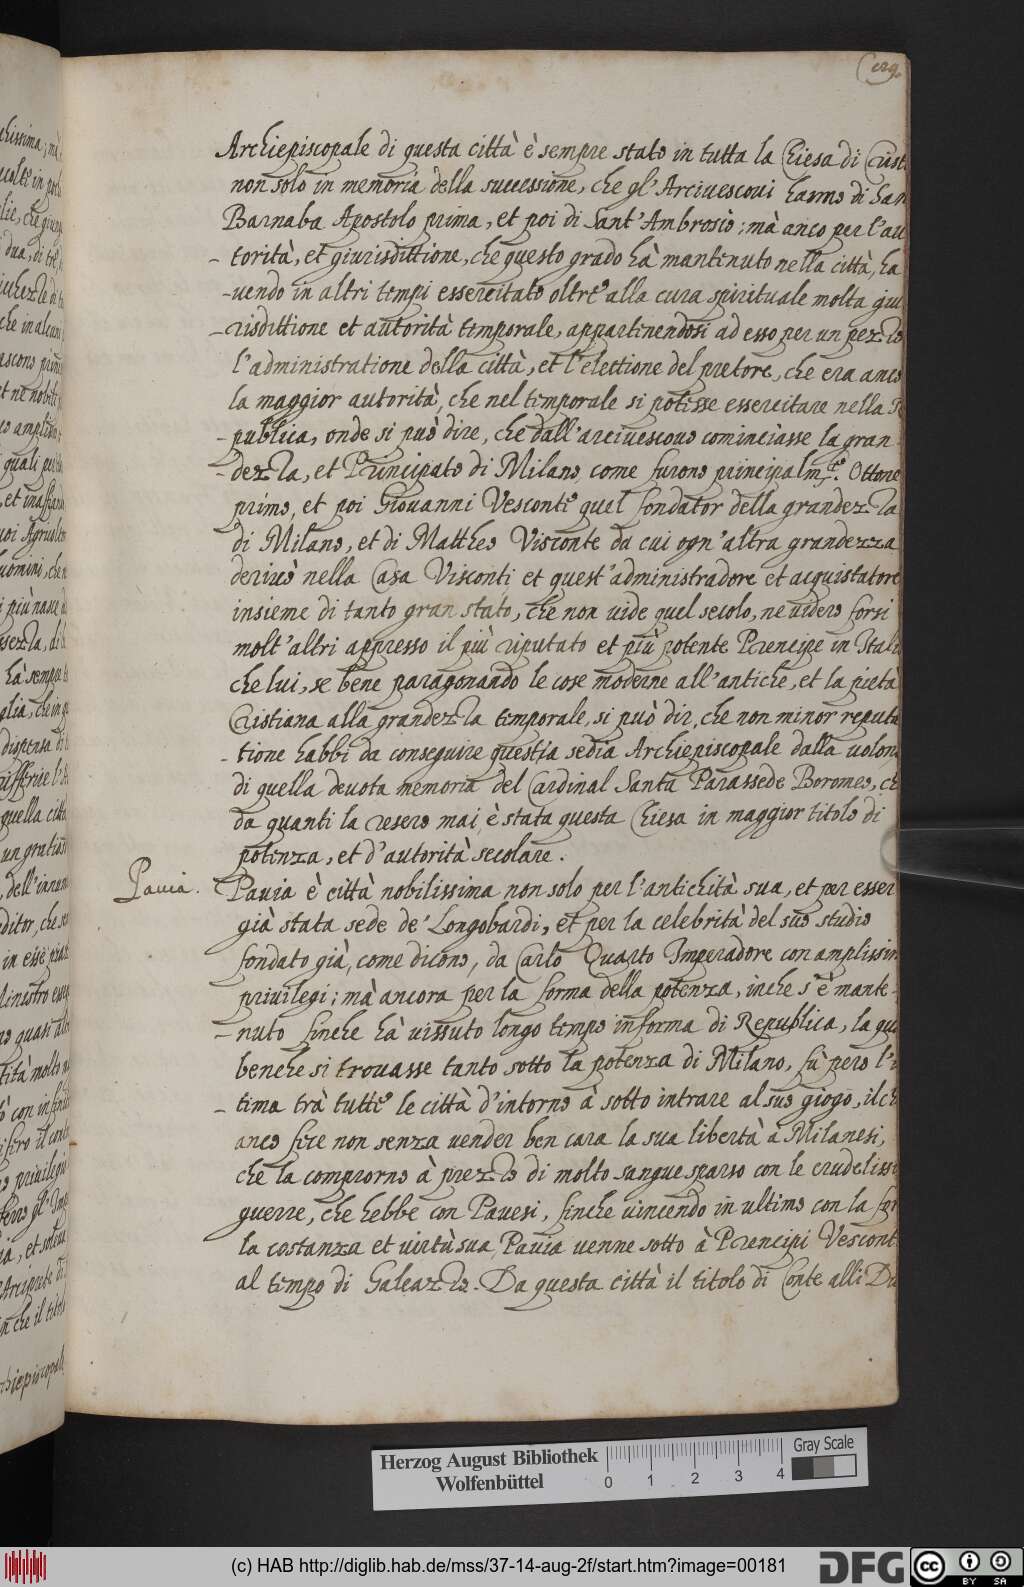 129.
Archiepiscopale di questa città è sempre stato in tutta la Chiesa di Crist
non solo in memoria della successione, che gl'Arcivescovi hanno di San
Barnaba Apostolo prima, et poi di Sant'Ambrosio; mà anco per l'au
- torità, et giurisdittione, che questo grado hà mantenuto nella città, ha
- vendo in altri tempi essercitato oltre alla cura spirituale molta giu
- risdittione et autorità temporale, appartenendosi ad esso per un pezzo
l'administratione della città, et l'elettione del pretore, che era anco
la maggior autorità, che nel temporale si potesse essercitare nella R
- publica, onde si può dire, che dall'arcivescovo cominciasse la gran-
- dezza, et Principato di Milano, come furono principalm.te Ottone
primo, et poi Giovanni Vesconte quel fondator della grandezza
di Milano, et di Mattheo Visconte da cui ogn'altra grandezza
derivò nella Casa Visconti et quest'administradore et acquistatore
insieme di tanto gran stato, che non vide quel secolo, ne videro forsi
molt'altri appresso il più riputato et più potente Prencipe in Itali
che lui, se bene paragonando le cose moderne all'antiche, et la pietà
Cristiana alla grandezza temporale, si può dir, che non minor reputa
- tione habbi da conseguire questa sedia Archiepiscopale dalla volon
di quella devota memoria del Cardinal Santa Parassede Boromeo, ch
da quanti la resero mai, è stata questa Chiesa in maggior titolo di
potenza, et d'autorità secolare.
Pavia.
Pavia è città nobilissima non solo per l'antichità sua, et per esser
già stata sede de' Longobardi, et per la celebrità del suo studio
fondato già, come dicono, da Carlo Quarto Imperadore con amplissim
privilegi; mà ancora per la forma della potenza, in che s'è mante-
- nuto finche hà vissuto longo tempo in forma di Republica, la qua
benche si trovasse tanto sotto la potenza di Milano, fù però l'u
- tima trà tutte le città d'intorno à sotto intrare al suo giogo, il ch
anco fece non senza vender ben cara la sua libertà a Milanesi,
che la comprorno à prezzo di molto sangue sparso con le crudelissi
guerre, che hebbe con Pavesi, finche vincendo in ultimo con la for
la costanza et virtù sua, Pavia venne sotto à Prencipi Vescont
al tempo di Galeazzo. Da questa città il titolo di Conte alli Du
Herzog August Bibliothek
Wolfenbüttel
0 1 2 3 4
Gray Scale
(c) HAB http://diglib.hab.de/mss/37-14-aug-2f/start.htm?image=00181
DFG
cc BY SA